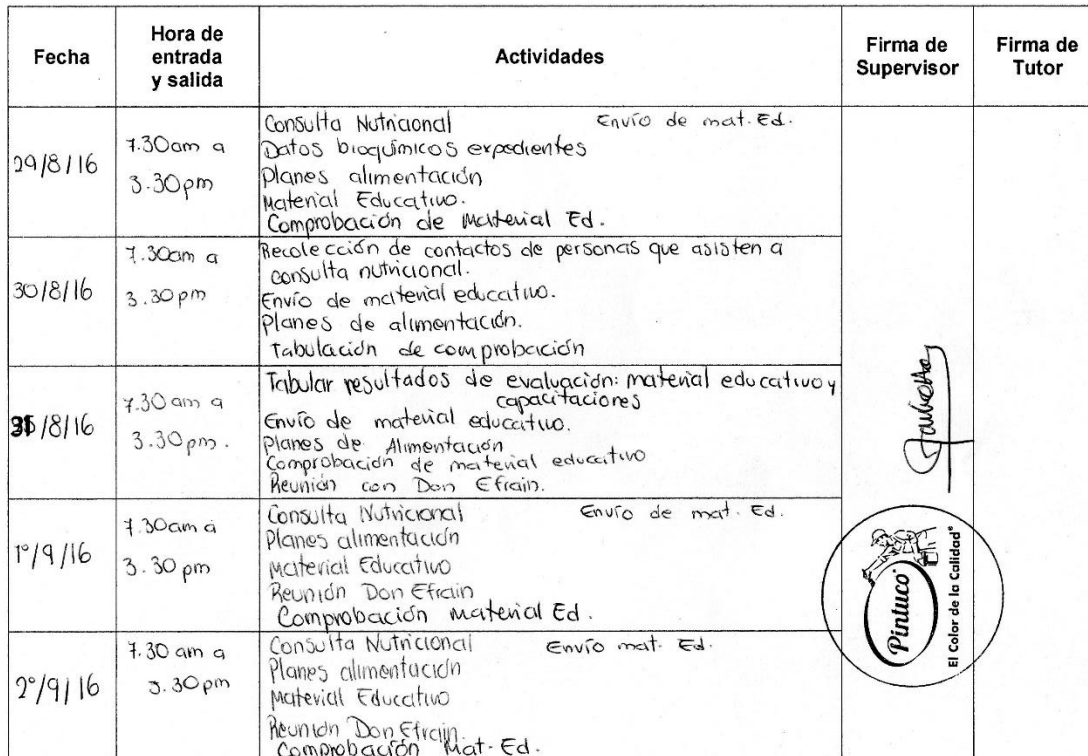 Fecha
Hora de
entrada
y salida
Actividades
Firma de
Supervisor
Firma de
Tutor
29/8/16
7.30am a
3.30pm
Consulta Nutricional Envío de mat. Ed.
Datos bioquímicos expedientes
Planes alimentación
Material Educativo.
Comprobación de Material Ed.
30/8/16
7.30am a
3.30pm
Recolección de contactos de personas que asisten a
consulta nutricional.
Envío de material educativo.
Planes de alimentación.
Tabulación de comprobación
31/8/16
7.30 am a
3.30pm.
Tabular resultados de evaluación: material educativo y
capacitaciones
Envío de material educativo.
Planes de Alimentación
Comprobación de material educativo
Reunión con Don Efrain.
1º/9/16
7.30am a
3.30 pm
Consulta Nutricional Envío de mat. Ed.
Planes alimentación
Material Educativo
Reunión Don Efrain
Comprobación Material Ed.
2º/9/16
7.30 am a
3.30pm
Consulta Nutricional Envío mat. Ed.
Planes alimentación
Material Educativo
Reunión Don Efrain.
Comprobación Mat. Ed.
Pintuco
El Color de la Calidad®